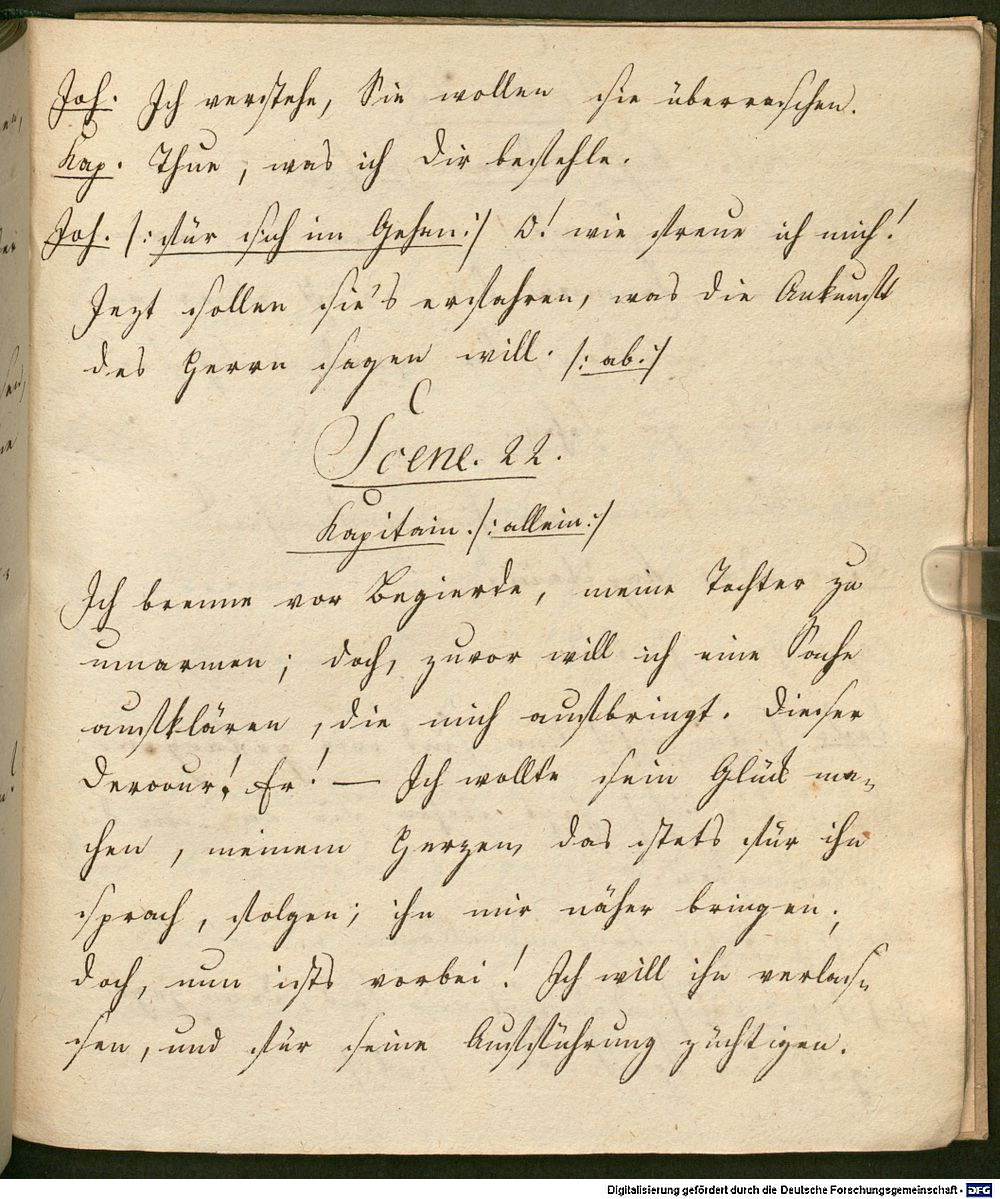 Joh. Ich verstehe, Sie wollen sie überraschen.
Kap. Thue, was ich dir befehle.
Joh. /: für sich im Gehen :/ O! wie freue ich mich!
Jezt sollen sie's erfahren, was die Ankunft
des Herrn sagen will. /: ab :/
Scene. 22.
Kapitain. /: allein :/
Ich brenne vor Begierde, meine Tochter zu
umarmen; doch, zuvor will ich eine Sache
aufklären, die mich aufbringt. Dieser
Dervour! Er! — Ich wollte sein Glück ma-
chen, meinem Herzen, das stets für ihn
sprach, folgen; ihn mir näher bringen;
doch, nun ists vorbei! Ich will ihn verlas-
sen, und für seine Aufführung züchtigen.
Digitalisierung gefördert durch die Deutsche Forschungsgemeinschaft - DFG